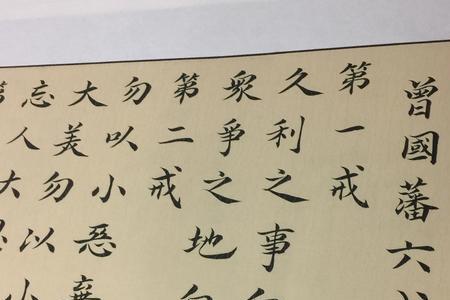 曾國藩六
第一戒
久利之事
眾爭之地
第二戒
勿以小惡棄
大美勿以小
忘人大
第